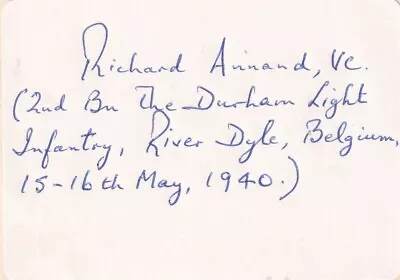 Richard Annand, VC.
(2nd Bn The Durham Light
Infantry, River Dyle, Belgium,
15-16th May, 1940.)